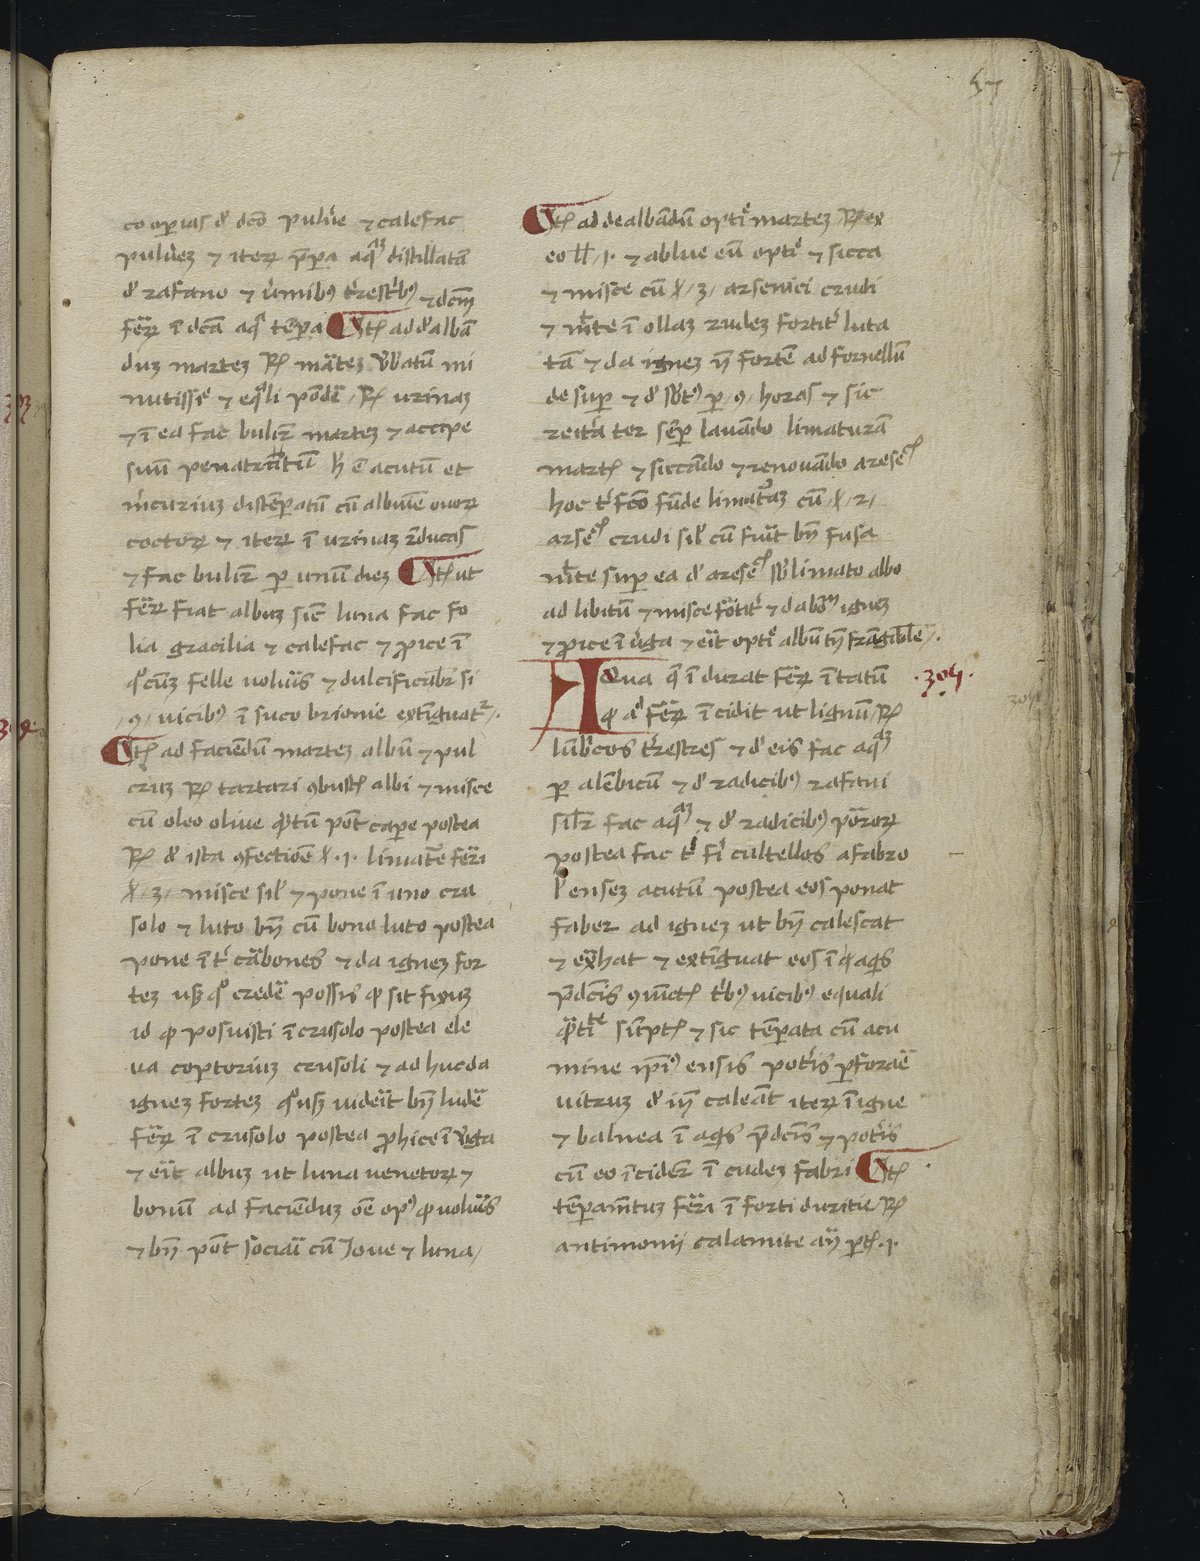 57
cooperias d' dc̄o pulūe ⁊ calefac
puldez ⁊ iterꝝ p̄pa aqᵃ̃ distillatā
d' rafano ⁊ ūmibꝰ t̄restribꝰ ⁊ dcm̄
ferꝝ ī dc̄a aqᵃ tēpa Itē ad d'albā
duz martez ℞ martez līatū mi
nutissīe ⁊ eqᵃli pondē ℞ urinaz
⁊ ī ea fac bulir̄ martez ⁊ accipe
suū penatrātiū h̄ ē acutū et
m̄curiuz distēpatū cū albūīe ovorꝝ
coctorꝝ ⁊ iterꝝ ī urinaz r̄ducas
⁊ fac bulir̄ ꝑ unū diez Itē ut
ferꝝ fiat albuz sic̄ luna fac fo
lia gracilia ⁊ calefac ⁊ ꝓice ī
qᵒcūz felle voluīs ⁊ dulcificabr̄ si
.9. vicibꝰ ī suco brionie extīguatᷣ.
Itē ad faciendū martez albū ⁊ pul
cruz ℞ tartari ꝯbustē albi ⁊ misce
cū oleo olive qᵃtū pōt cape postea
℞ d' ista ꝯfectiōe ℥.1. limatᷣe feri
℥.3. misce sil' ⁊ pone ī uno cru
solo ⁊ luto bn̄ cū bono luto postea
pone īt' cābones ⁊ da ignez for
tez usqᵒ credē possis ꝙ sit fixuz
id ꝙ posuisti ī crusolo postea ele
va coptoriuz crusoli ⁊ adhuc da
ignez fortez qᵒusqᵉ videāt bn̄ ludē
ferꝝ ī crusolo postea ꝓhice ī v̄ga
⁊ eīt albuz ut luna venetorꝝ ⁊
bonū ad faciēduz oē opꝰ ꝙ voluīs
⁊ bn̄ pōt sociaī cū Jove ⁊ luna
Itē ad dealbandū optīe martez ℞ ex
eo ll̄.1. ⁊ ablue eū optīe ⁊ sicca
⁊ misce cū ℥.3. arsenici crudi
⁊ mīte ī ollaz rudez fortit' luta
tā ⁊ da ignez n̄ fortē ad fornellū
de suꝑ ⁊ d' sb̄tꝰ ꝑ .9. horas ⁊ sic
reit'a ter sēꝑ lavādo limaturā
martē ⁊ siccādo ⁊ renovādo aresēᶜ
hoc t' fc̄o fūde limatᷣaz cū ℥.2.
arsēᶜ crudi sil' cū fuīt bn̄ fusa
mīte suꝑ ea d' aresēᶜ sb̄limato albo
ad libitū ⁊ misce fōtit' ⁊ dabᷤ ignez
⁊ ꝓice ī v̄ga ⁊ eīt optīe albū n̄ frāgibilē.
Aqua q̄ īdurat ferꝝ ītātū
ꝙ aᵈ ferꝝ īcidit ut lignū ℞
lūbricos t̄restres ⁊ d' eis fac aqᵃ̃
ꝑ alēbicū ⁊ d' radicibꝰ rafani
silr̄ fac aqᵃ̃ ⁊ d' radicibꝰ porrorꝝ
postea fac t' fi' cultellos a fabro
l' ensez acutū postea eos ponat
faber ad ignez ut bn̄ calescat
⁊ ext̄hat ⁊ extīguat eos ī aqⁱs
p̄dcīs ꝯiūctē t'bꝰ vicibꝰ equali
qᵃtitᵗᵉ sūptē ⁊ sic tēperata cū acu
mine ip̄iꝰ ensis pot'is ꝑforaē
vitruz d' iñ caleāt iterꝝ ī igne
⁊ balnea ī aqⁱs p̄dcīs ⁊ pot'is
cū eo īciderē ī cudez fabri Itē
tēpam̄tuz feri ī forti duritie ℞
antimonii calamite añ ꝑtē.1.
.304.
304